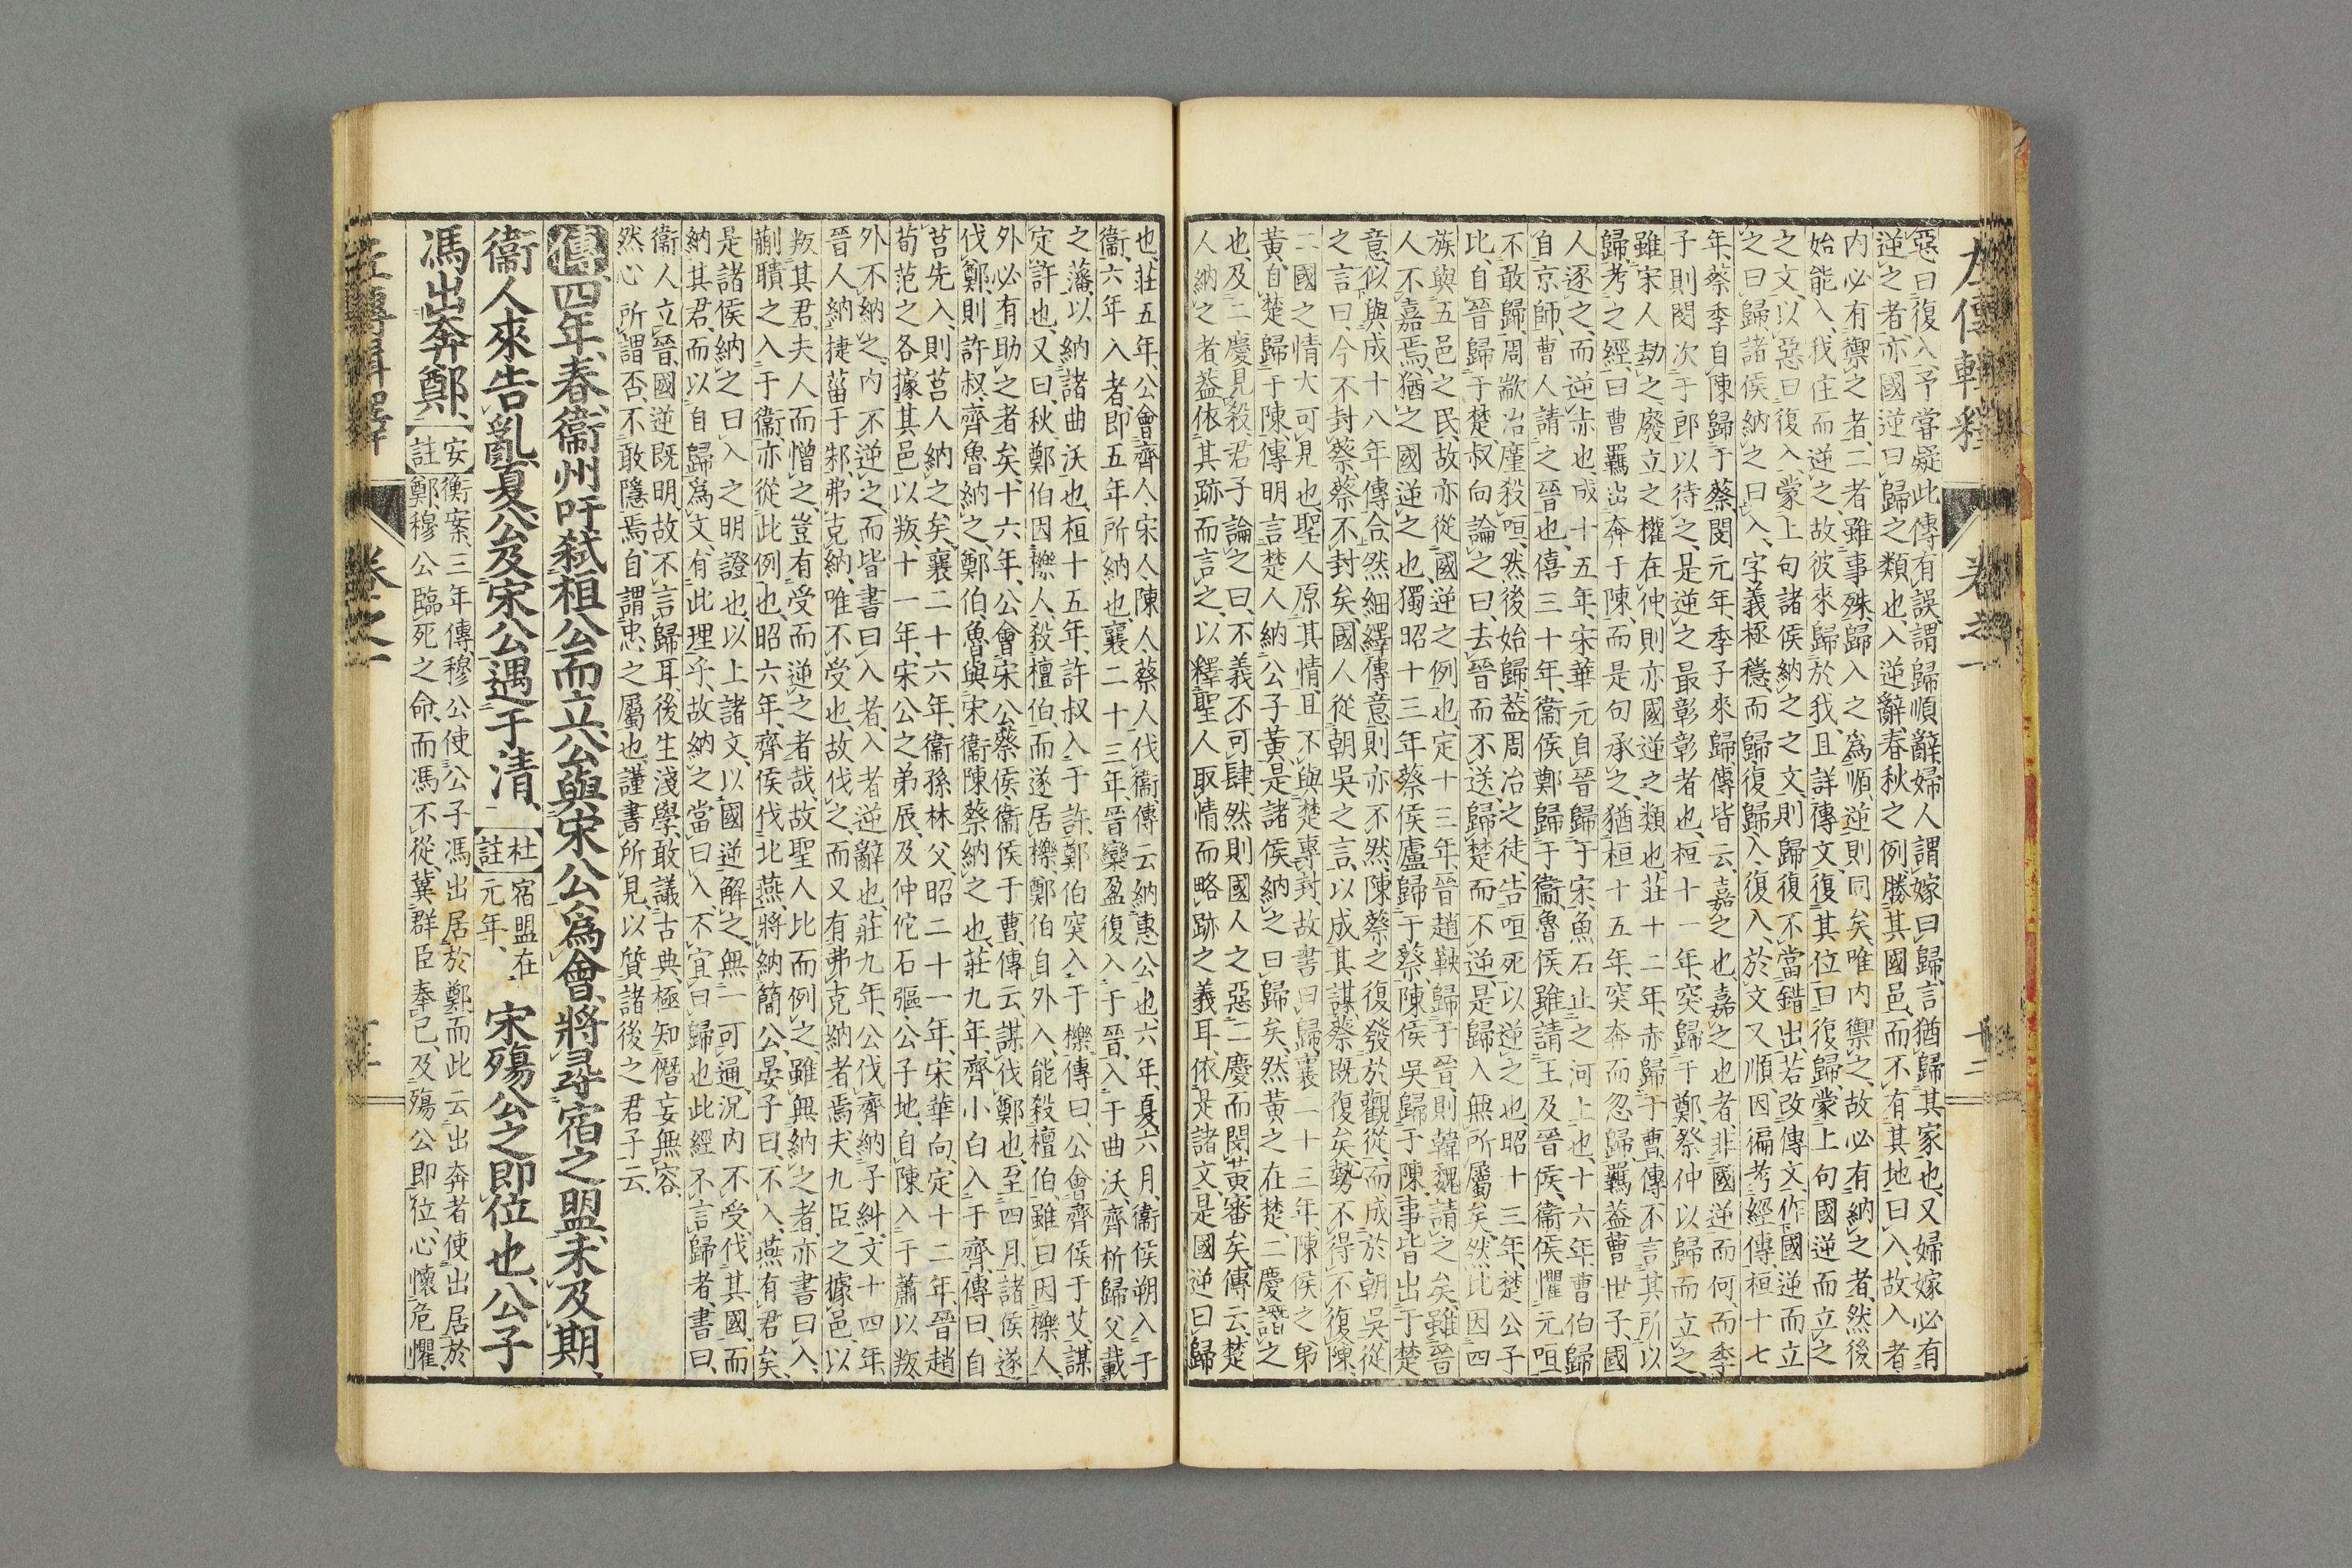 左傳輯釋 卷之一 十二
惡曰復入、予嘗疑此傳有誤、謂歸順辭、婦人謂嫁曰歸、言猶歸其家也、又婦嫁必有
逆之者、亦國逆曰歸之類也、入逆辭、春秋之例、勝其國邑、而不有其地曰入、故入者、
內必有禦之者、二者雖事殊、歸入之爲順逆則同矣、唯內禦之、故必有納之者、然後
始能入、我往而逆之、故彼來歸於我、且詳傳文、復其位曰復歸、蒙上句國逆而立之
之文、以惡曰復入、蒙上句諸侯納之之文、則歸復不當錯出、若改傳文作國逆而立
之曰歸、諸侯納之曰入、字義極穩、而歸復歸、入復入、於文又順、因徧考經傳、桓十七
年、蔡季自陳歸于蔡、閔元年、季子來歸、傳皆云、嘉之也、嘉之也者、非國逆而何、而季
子則閔次于郎以待之、是逆之最彰彰者也、桓十一年、突歸于鄭、祭仲以歸而立之、
雖宋人劫之、廢立之權在仲、則亦國逆之類也、莊十二年、赤歸于曹、傳不言其所以
歸、考之經、曰曹羈出奔于陳、而是句承之、猶桓十五年、突奔而忽歸、羈蓋曹世子、國
人逐之、而逆赤也、成十五年、宋華元自晉歸于宋、魚石止之河上也、十六年、曹伯歸
自京師、曹人請之晉也、僖三十年、衞侯鄭歸于衞、魯侯雖請王及晉侯、衞侯懼元咺
不敢歸、周歂冶廑殺咺、然後始歸、蓋周冶之徒、告咺死以逆之也、昭十三年、楚公子
比、自晉歸于楚、叔向論之曰、去晉而不送、歸楚而不逆、是歸入無所屬矣、然比因四
族與五邑之民、故亦從國逆之例也、定十三年、晉趙鞅歸于晉、則韓魏請之矣、雖晉
人不嘉焉、猶之國逆之也、獨昭十三年、蔡侯廬歸于蔡、陳侯吳歸于陳、事皆出于楚
意、似與成十八年傳合、然細繹傳意、則亦不然、陳蔡之復、發於觀從、而成於朝吳、從
之言曰、今不封蔡、蔡不封矣、國人從朝吳之言、以成其謀、蔡既復矣、勢不得不復陳、
二國之情大可見也、聖人原其情、且不與楚專封、故書曰歸、襄二十三年、陳侯之弟
黃、自楚歸于陳、傳明言楚人納公子黃、是諸侯納之曰歸矣、然黃之在楚、二慶譖之
也、及二慶見殺、君子論之曰、不義不可肆、然則國人之惡二慶而閔黃審矣、傳云、楚
人納之者、蓋依其跡而言之、以釋聖人取情而略跡之義耳、依是諸文、是國逆曰歸
也、莊五年、公會齊人、宋人、陳人、蔡人伐衞、傳云納惠公也、六年、夏六月、衞侯朔入于
衞、六年入者、即五年所納也、襄二十三年、晉欒盈復入于晉、入于曲沃、齊析歸父載
之藩、以納諸曲沃也、桓十五年、許叔入于許、鄭伯突入于櫟、傳曰、公會齊侯于艾、謀
定許也、又曰、秋、鄭伯因櫟人、殺檀伯、而遂居櫟、鄭伯自外入、能殺檀伯、雖曰因櫟人、
外必有助之者矣、十六年、公會宋公蔡侯衞侯于曹、傳云、謀伐鄭也、至四月、諸侯遂
伐鄭、則許叔、齊魯納之、鄭伯、魯與宋衞陳蔡納之也、莊九年、齊小白入于齊、傳曰、自
莒先入、則莒人納之矣、襄二十六年、衞孫林父、昭二十一年、宋華向、定十二年、晉趙
荀范之各據其邑以叛、十一年、宋公之弟辰、及仲佗石彄公子地、自陳入于蕭以叛、
外不納之、內不逆之、而皆書曰入者、入者逆辭也、莊九年、公伐齊納子糾、文十四年、
晉人納捷菑于邾、弗克納、唯不受也、故伐之、而又有弗克納者焉、夫九臣之據邑、以
叛其君、夫人而憎之、豈有受而逆之者哉、故聖人比而例之、雖無納之者、亦書曰入、
蒯聵之入于衞、亦從此例也、昭六年、齊侯伐北燕、將納簡公、晏子曰、不入、燕有君矣、
是諸侯納之曰入之明證也、以上諸文、以國逆解之、無一可通、況內不受、伐其國、而
納其君、而以自歸爲文、有此理乎、故納之當曰入、不宜曰歸也、此經不言歸者、書曰、
衞人立晉、國逆既明、故不言歸耳、後生淺學、敢議古典、極知僭妄無容、
然心所謂否、不敢隱焉、自謂忠之屬也、謹書所見、以質諸後之君子云、
傳四年、春、衞州吁弑桓公而立、公與宋公爲會、將尋宿之盟、未及期、
衞人來告亂、夏、公及宋公遇于清、【杜註】宿盟在元年、宋殤公之即位也、公子
馮出奔鄭、【安註】衡案、三年傳、穆公使公子馮出居於鄭、而此云出奔者、使出居於
鄭、穆公臨死之命、而馮不從、冀群臣奉己、及殤公即位、心懷危懼、
左傳輯釋 卷之一